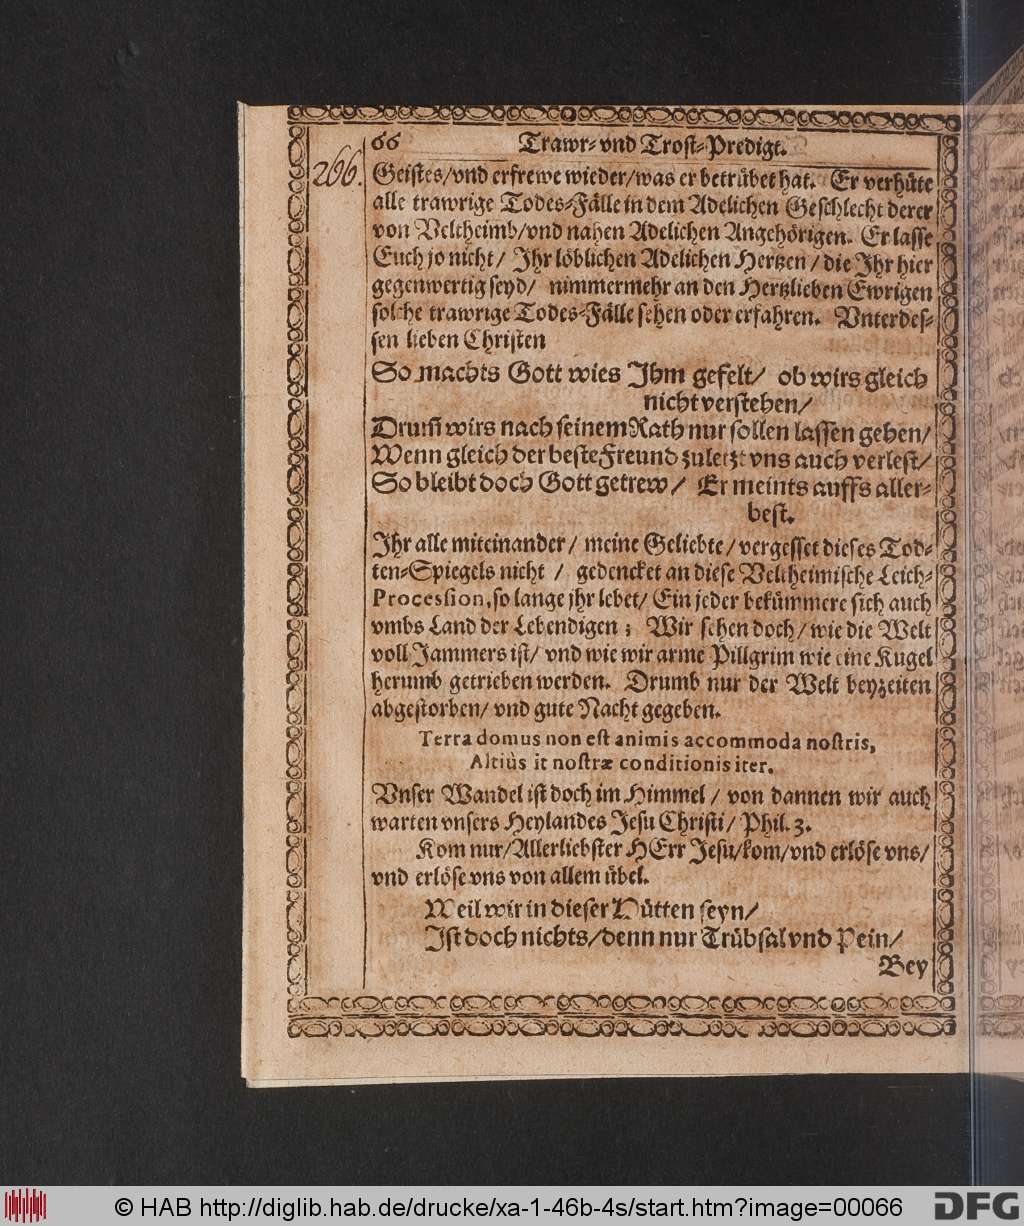 66 Trawr- vnd Trost-Predigt.
266.
Geistes/vnd erfrewe wieder/was er betrübet hat. Er verhüte
alle trawrige Todes-Fälle in dem Adelichen Geschlecht derer
von Veltheimb/vnd nahen Adelichen Angehörigen. Er lasse
Euch jo nicht/ Ihr löblichen Adelichen Hertzen/die Ihr hier
gegenwertig seyd/ nimmermehr an den Hertzlieben Ewrigen
solche trawrige Todes-Fälle sehen oder erfahren. Vnterdes-
sen lieben Christen
So machts Gott wies Ihm gefelt/ ob wirs gleich
nicht verstehen/
Drum̃ wirs nach seinem Rath nur sollen lassen gehen/
Wenn gleich der beste Freund zuletzt vns auch verlest/
So bleibt doch Gott getrew/ Er meints auffs aller-
best.
Ihr alle miteinander/ meine Geliebte/vergesset dieses Tod-
ten-Spiegels nicht/ gedencket an diese Veltheimische Leich-
Procession, so lange jhr lebet/ Ein jeder bekümmere sich auch
vmbs Land der Lebendigen; Wir sehen doch/wie die Welt
voll Jammers ist/ vnd wie wir arme Pillgrim wie eine Kugel
herumb getrieben werden. Drumb nur der Welt beyzeiten
abgestorben/ vnd gute Nacht gegeben.
Terra domus non est animis accommoda nostris,
Altiùs it nostræ conditionis iter.
Vnser Wandel ist doch im Himmel/ von dannen wir auch
warten vnsers Heylandes Jesu Christi/ Phil. 3.
Kom nur/Allerliebster HErr Jesu/kom/vnd erlöse vns/
vnd erlöse vns von allem übel.
Weil wir in dieser Hütten seyn/
Ist doch nichts/denn nur Trübsal vnd Pein/
Bey
© HAB http://diglib.hab.de/drucke/xa-1-46b-4s/start.htm?image=00066
DFG